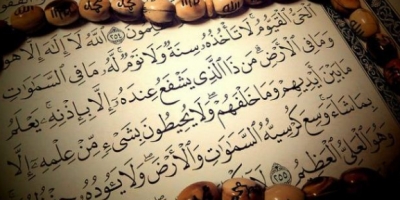 ٱللَّهُ لَآ إِلَٰهَ إِلَّا هُوَ
ٱلْحَىُّ ٱلْقَيُّومُ ۚ لَا تَأْخُذُهُۥ سِنَةٌ وَلَا نَوْمٌ ۚ لَّهُۥ مَا فِى ٱلسَّمَٰوَٰتِ
وَمَا فِى ٱلْأَرْضِ ۗ مَن ذَا ٱلَّذِى يَشْفَعُ عِندَهُۥٓ إِلَّا بِإِذْنِهِۦ ۚ يَعْلَمُ
مَا بَيْنَ أَيْدِيهِمْ وَمَا خَلْفَهُمْ ۖ وَلَا يُحِيطُونَ بِشَىْءٍ مِّنْ عِلْمِهِۦٓ إِلَّا
بِمَا شَآءَ ۚ وَسِعَ كُرْسِيُّهُ ٱلسَّمَٰوَٰتِ وَٱلْأَرْضَ ۖ وَلَا يَـُٔودُهُۥ
وَهُوَ ٱلْعَلِىُّ ٱلْعَظِيمُ ٢٥٥